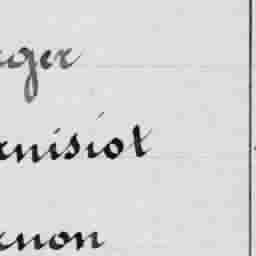 ger
nisiot
non